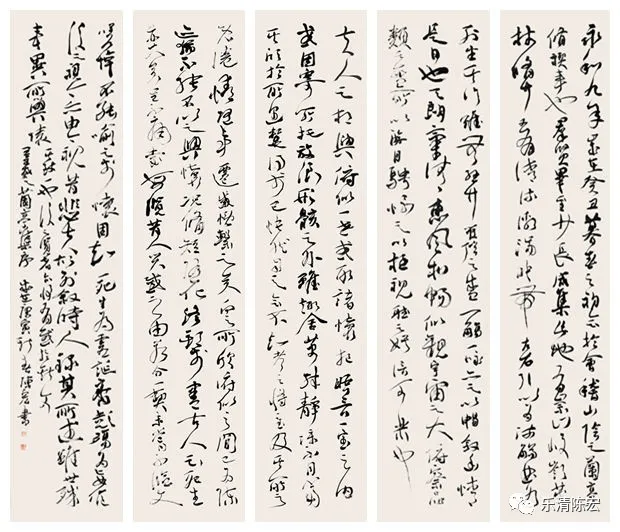 永和九年歲在癸丑暮春之初會於會稽山陰之蘭亭
脩禊事也羣賢畢至少長咸集此地有崇山峻領茂
林脩竹又有清流激湍映帶左右引以為流觴曲水
列坐其次雖無絲竹管弦之盛一觴一詠亦足以暢敘幽情
是日也天朗氣清惠風和暢仰觀宇宙之大俯察品
類之盛所以遊目騁懷足以極視聽之娛信可樂也
夫人之相與俯仰一世或取諸懷抱晤言一室之內
或因寄所託放浪形骸之外雖趣舍萬殊靜躁不同當
其欣於所遇暫得於己快然自足不知老之將至及其所之
既倦情隨事遷感慨繫之矣向之所欣俯仰之間以為陳
迹猶不能不以之興懷況脩短隨化終期於盡古人云死生
亦大矣豈不痛哉每覽昔人興感之由若合一契未嘗不臨文
嗟悼不能喻之於懷固知一死生為虛誕齊彭殤為妄作
後之視今亦由今之視昔悲夫故列敘時人錄其所述雖世殊
事異所以興懷其致一也後之覽者亦將有感於斯文
王羲之蘭亭集序 庚寅 陳宏書
乐清陈宏